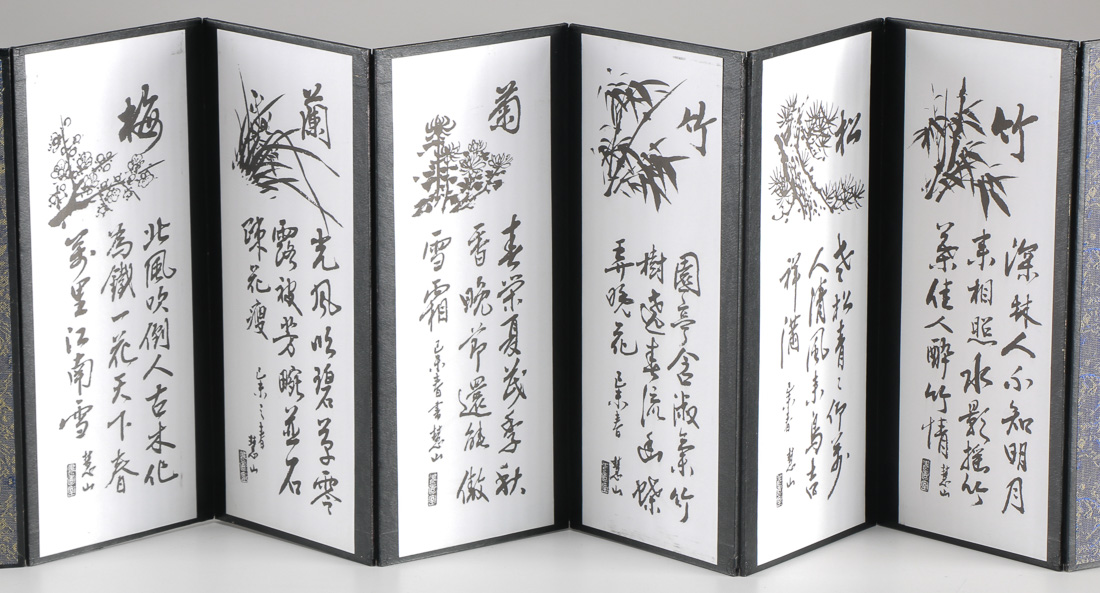 梅
北風吹倒人古木化
為鐵一花天下春
萬里江南雪
慧山
蘭
光風吹碧草零
露被芳畹並石
疎花瘦
己未之春
慧山
菊
春榮夏茂季秋
香晚節還能傲
雪霜
己未春書慧山
竹
園亭含淑氣竹
樹遶春流幽蝶
弄晚花
己未春
慧山
松
老松青々仰萬
人清風来鳥吉
祥满
己未春
慧山
竹
深林人不知明月
来相照水影摇竹
葉佳人醉竹情
慧山